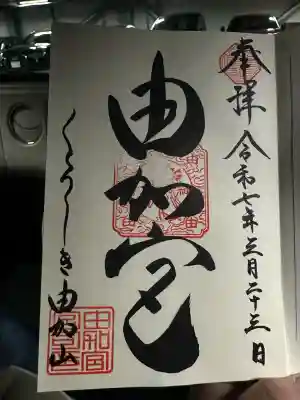 奉拝
令和七年三月二十三日
由加宮
くらしき由加山